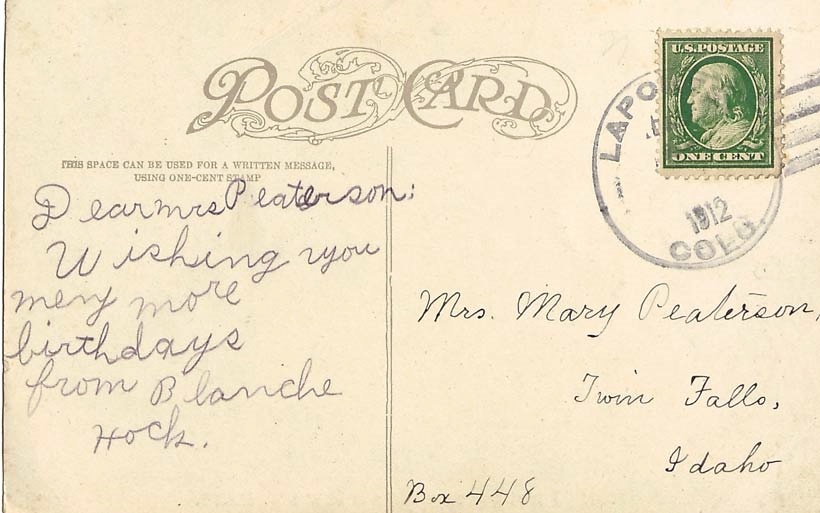 POST CARD
THIS SPACE CAN BE USED FOR A WRITTEN MESSAGE,
USING ONE-CENT STAMP
Dear mrs Peaterson:
Wishing you
meny more
birthdays
from Blanche
Hock.
U.S. POSTAGE
ONE CENT
LAPO
1912
COLO.
Mrs. Mary Peaterson,
Twin Falls,
Idaho
Box 448